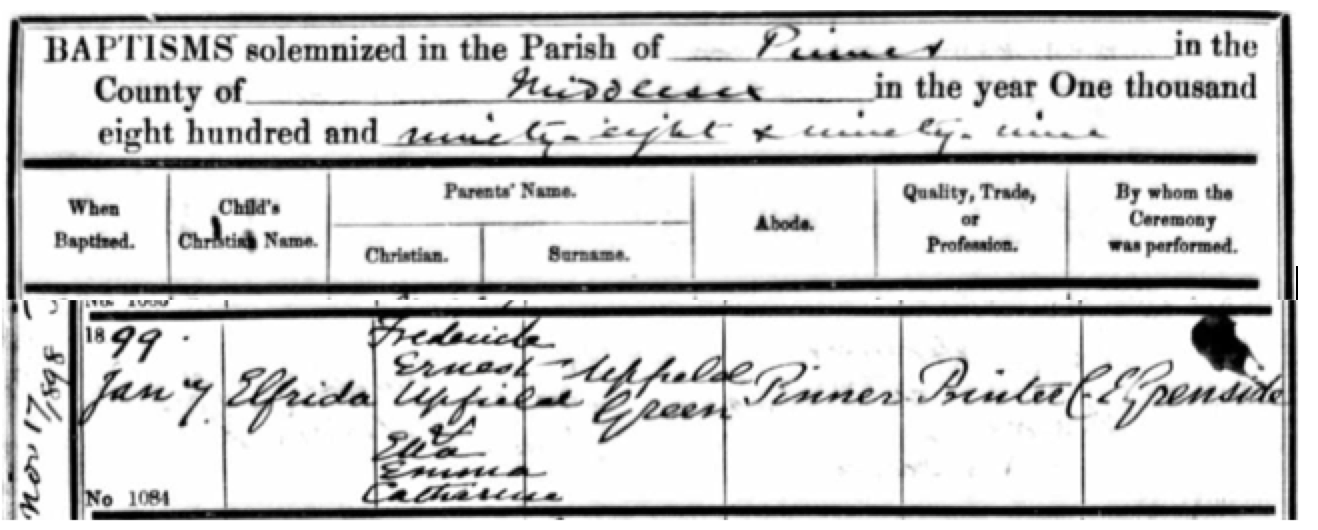 BAPTISMS solemnized in the Parish of Pinner in the
County of Middlesex in the year One thousand
eight hundred and ninety-eight & ninety-nine
When Baptized.
Child's Christian Name.
Parents' Name.
Christian.
Surname.
Abode.
Quality, Trade, or Profession.
By whom the Ceremony was performed.
Nov 17/1898
1899
Jan 7.
No 1084
Elfrida
Frederick
Ernest
Upfield
&
Etta
Emma
Catharine
Upfield
Green
Pinner
Printer
C. E. Grenside